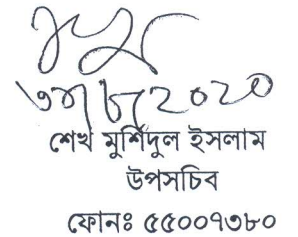 ৩১/৮/২০২০
শেখ মুর্শিদুল ইসলাম
উপসচিব
ফোনঃ ৫৫০০৭৩৮০